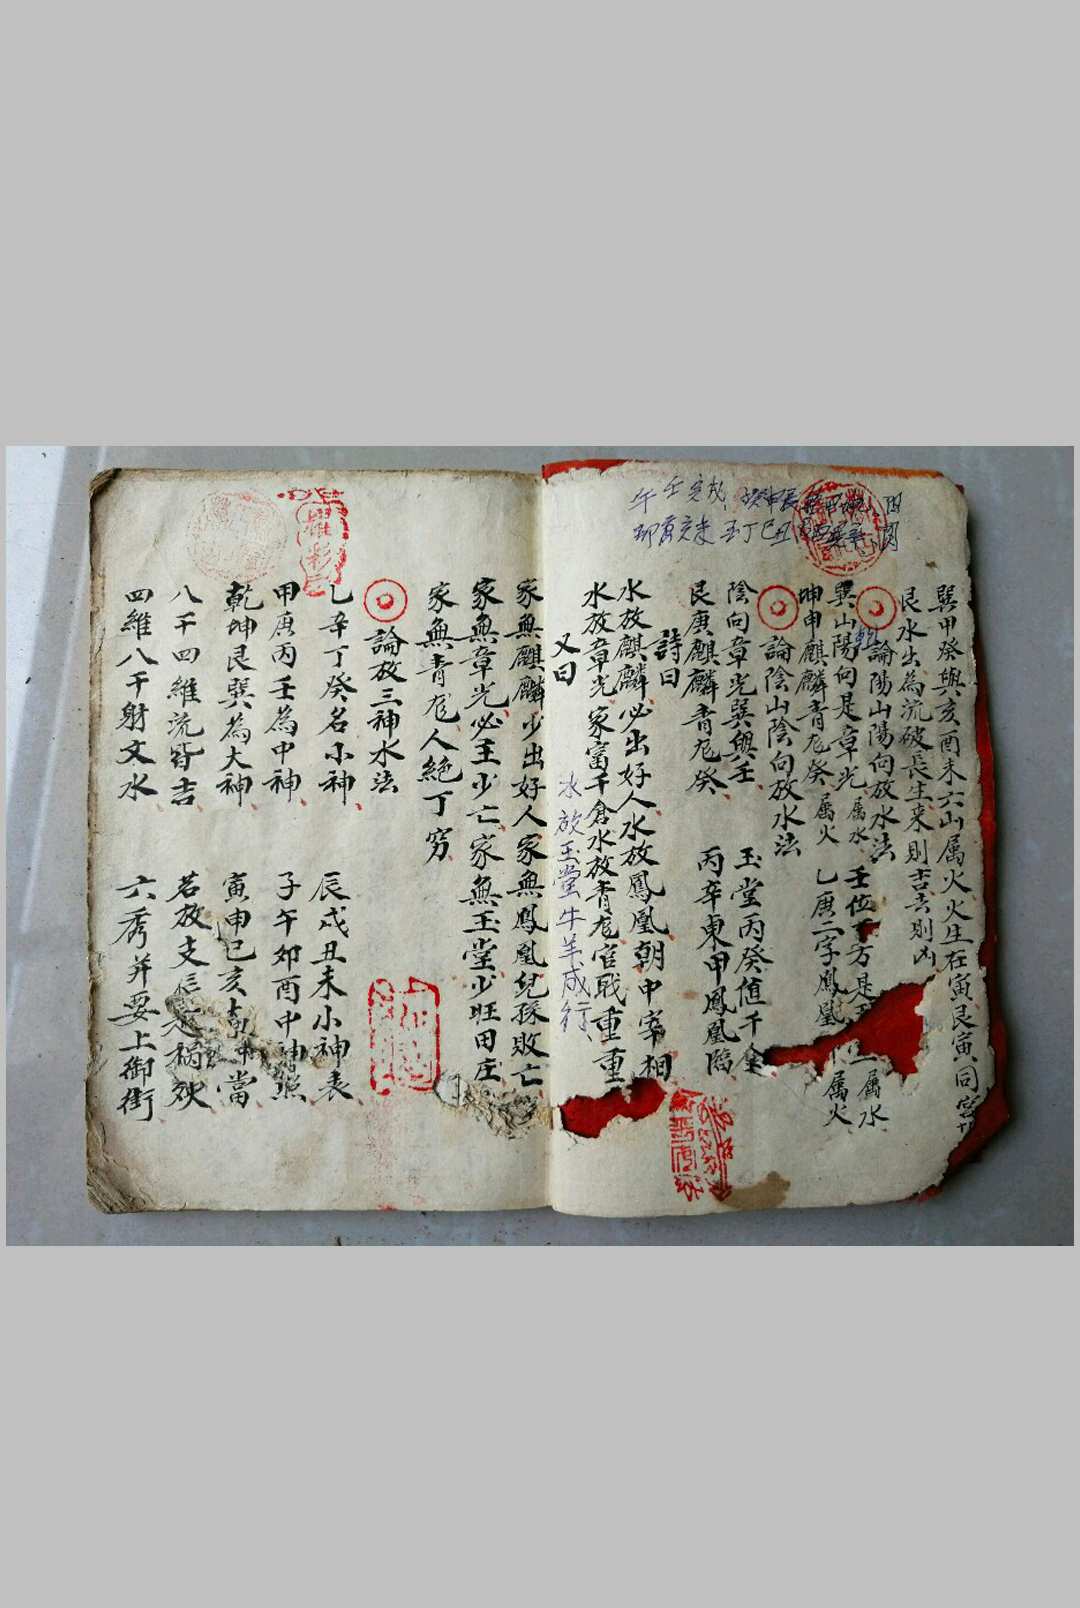 巽甲癸與亥酉未六山属火火生在寅艮寅同
艮水出為流破長生来則吉去則凶
論陽山陽向放水法
巽山陽向是章光属水 壬位 方是 属水
坤申麒麟青龙癸属火 乙庚二字鳳凰 属火
論陰山陰向放水法
陰向章光巽與壬 玉堂丙癸值千金
艮庚麒麟青龙癸 丙辛東甲鳳凰臨
詩曰
水放麒麟必出好人水放鳳凰朝中宰相
水放章光家富千倉水放青龙官戢重重
水放玉堂牛羊成行
又曰
家無麒麟少出好人家無鳳凰兒孫敗亡
家無章光必主少亡家無玉堂少旺田庄
家無青龙人絶丁窮
論放三神水法
乙辛丁癸名小神 辰戌丑未小神表
甲庚丙壬為中神 子午卯酉中神照
乾坤艮巽為大神 寅申巳亥 神當
八干四維流皆吉 若放支 禍殃
四維八干射文水 六秀并要上御街